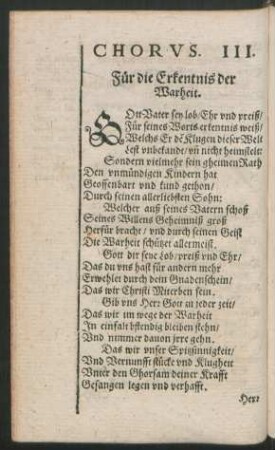 CHORVS. III.
Für die Erkentnis der
Warheit.
GOtt Vater sey lob/Ehr vnd preiß/
Für seines Worts erkentnis weiß/
Welchs Er dē Klugen dieser Welt
Lest vnbekandt/vñ nicht heimstelt:
Sondern vielmehr sein gheimen Rath
Den vnmündigen Kindern hat
Geoffenbart vnd kund gethon/
Durch seinen allerliebsten Sohn:
Welcher auß seines Vatern schoß
Seines Willens Geheimniß groß
Herfür bracht/ vnd durch seinen Geist
Die Warheit schützet allermeist.
Gott dir seye Lob/preiß vnd Ehr/
Das du vns hast für andern mehr
Erwehlet durch dein Gnadenschein/
Das wir Christi Miterben sein.
Gib vns Herr Gott in jeder zeit/
Das wir im wege der Warheit
In einfalt bstendig bleiben stehn/
Vnd nimmer dauon jrre gehn.
Das wir vnser Spitzinnigkeit/
Vnd Vernunfft stücke vnd Klugheit
Vnter den Ghorsam deiner Krafft
Gefangen legen vnd verhafft.
Herr